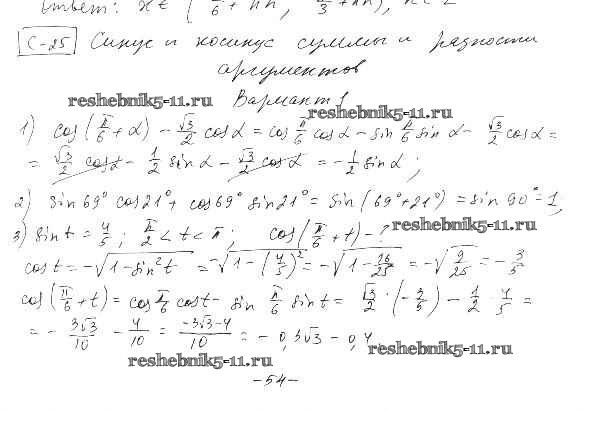 Ответ: x ∈ ( π/6 + πn, π/3 + πn), n ∈ Z
С-25 Синус и косинус суммы и разности
аргументов
reshebnik5-11.ru Вариант 1
1) cos(π/6 + α) − √3/2 cos α = cos π/6 cos α − sin π/6 sin α − √3/2 cos α =
= √3/2 cos α − 1/2 sin α − √3/2 cos α = −1/2 sin α;
2) sin 69° cos 21° + cos 69° sin 21° = sin (69° + 21°) = sin 90° = 1;
3) sin t = 4/5; π/2 < t < π; cos(π/6 + t) − ? reshebnik5-11.ru
cos t = −√(1 − sin² t) = −√(1 − (4/5)²) = −√(1 − 16/25) = −√(9/25) = −3/5
cos(π/6 + t) = cos π/6 cos t − sin π/6 sin t = √3/2 · (−3/5) − 1/2 · 4/5 =
= − 3√3/10 − 4/10 = (−3√3 − 4)/10 = −0,3√3 − 0,4 reshebnik5-11.ru
reshebnik5-11.ru
−54−